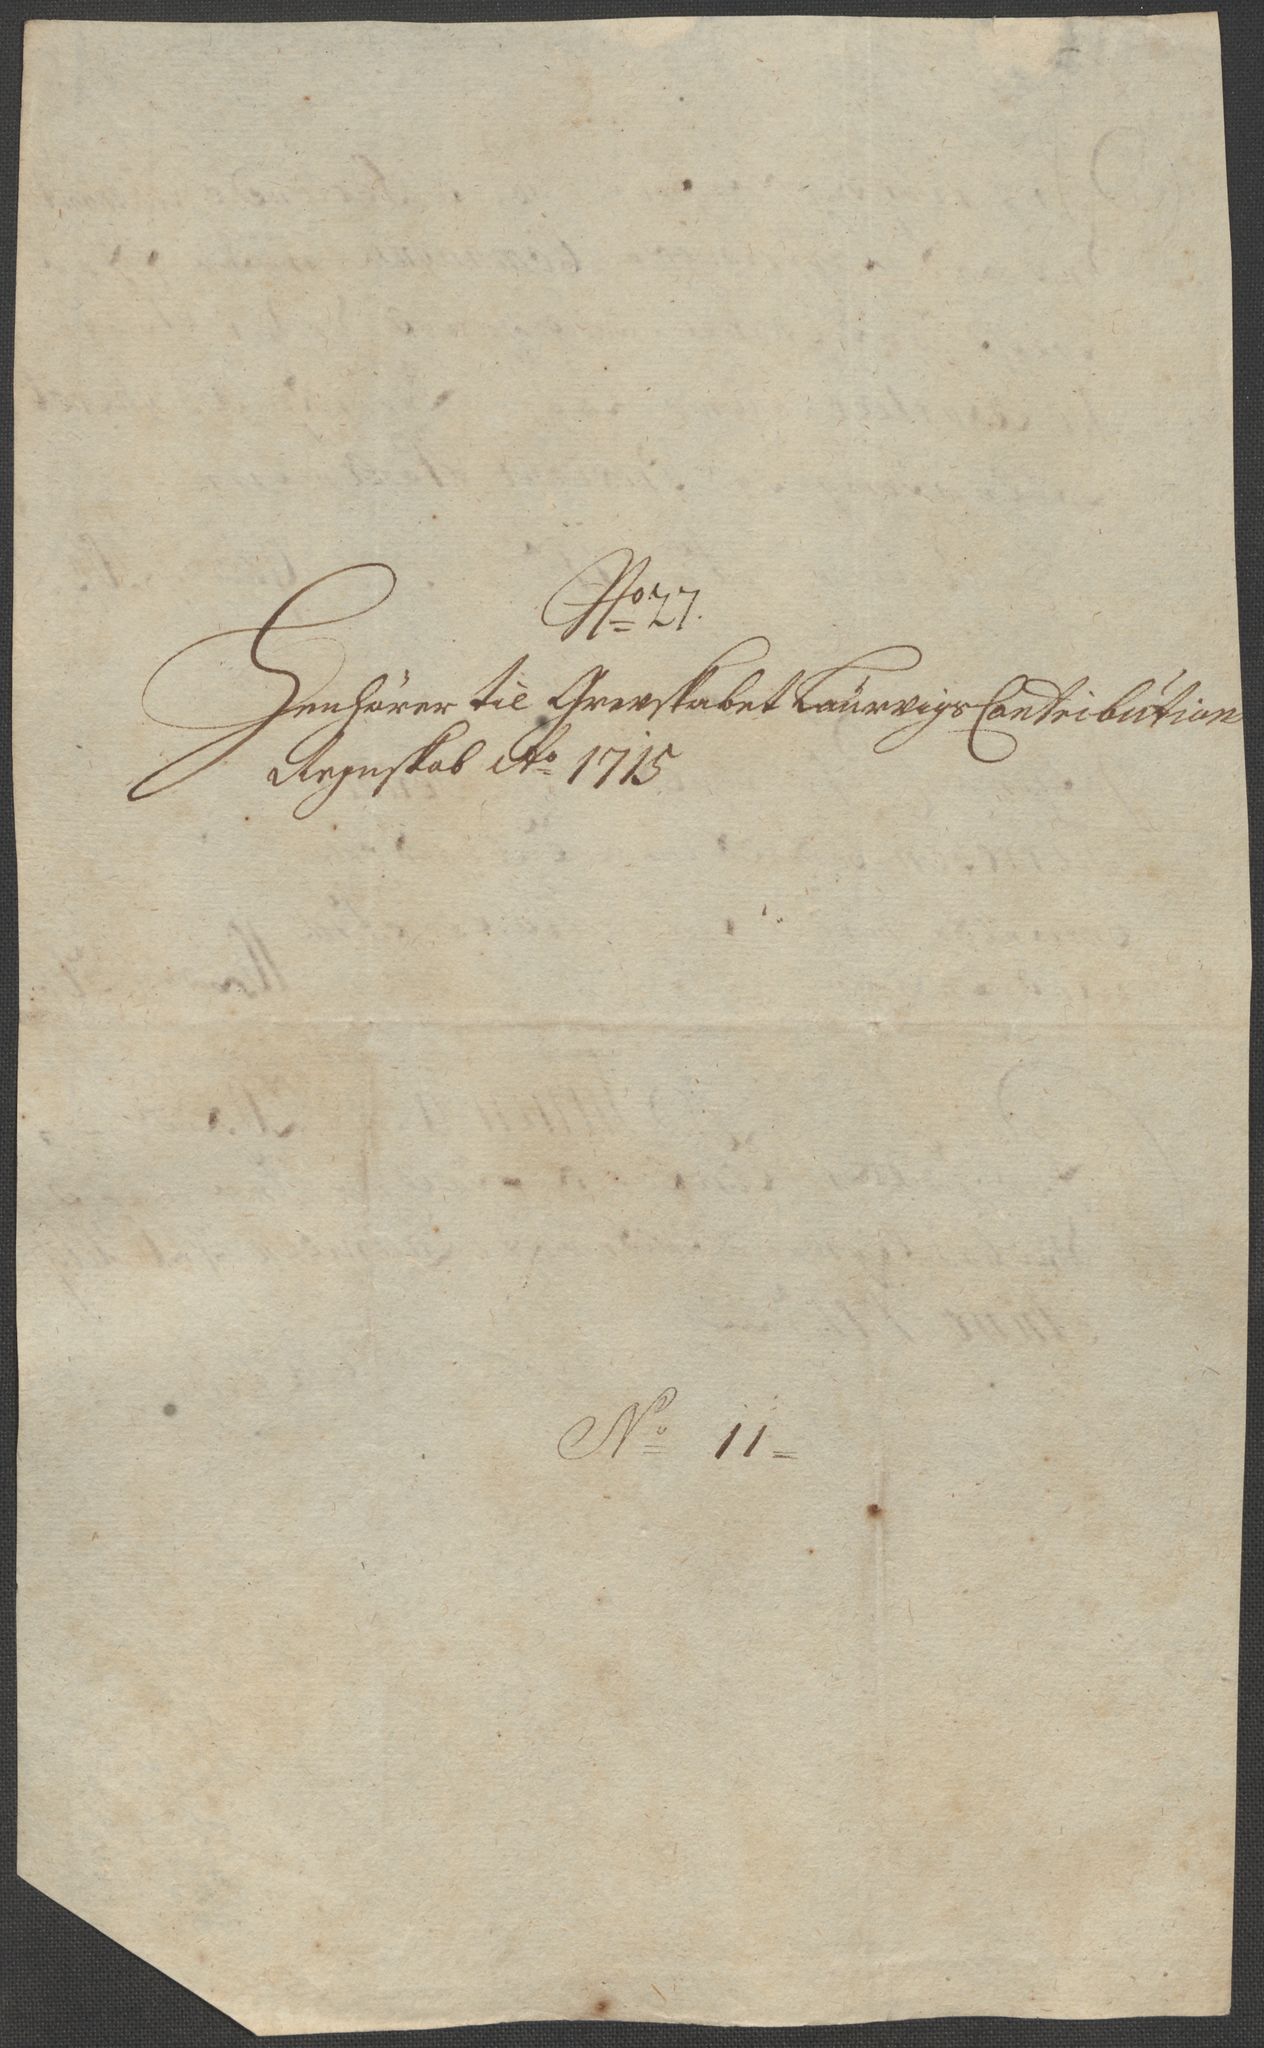 No 27.
Henhörer til Grevskabet Laúrvigs Contribútion
Regnskab Ao 1715
No 11